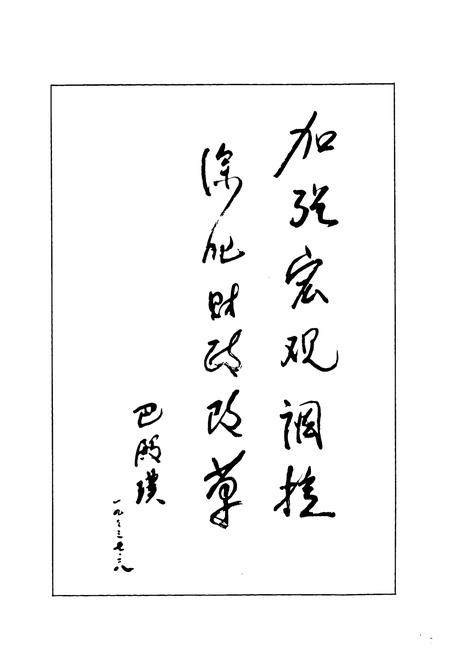 加强宏观调控
深化财政改革
巴殿璞
一九九三·七·二八